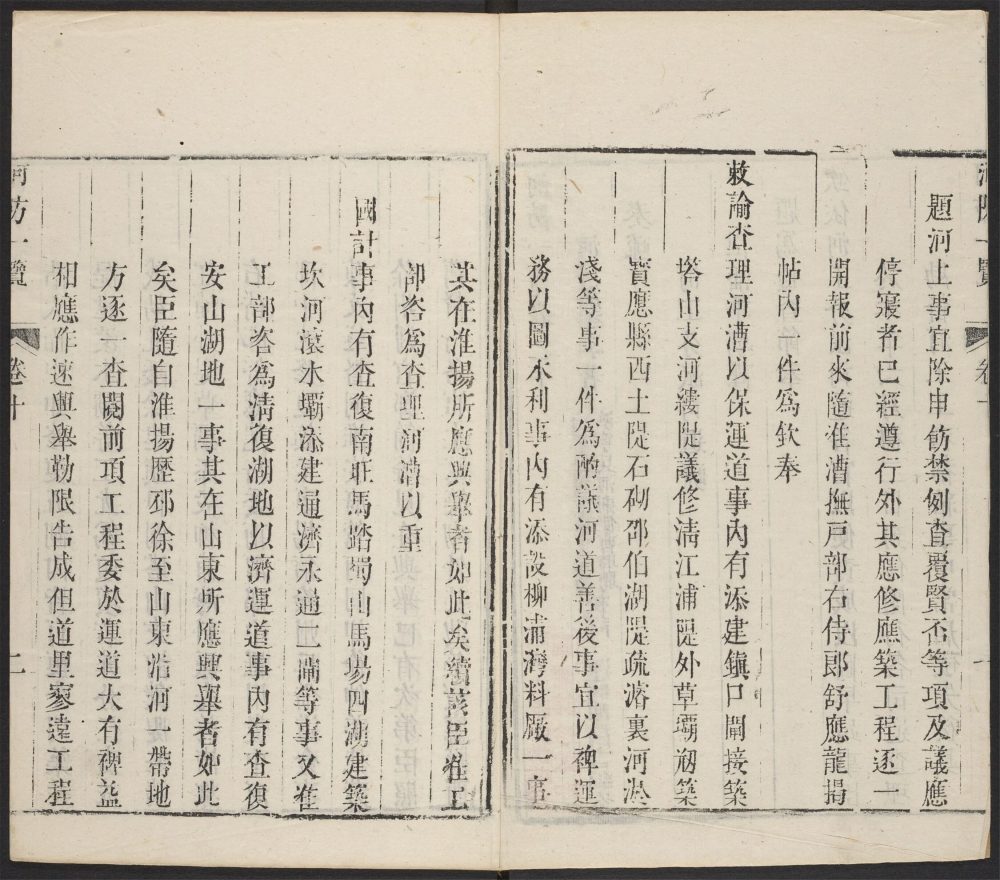 河防一覽
卷十
題河上事宜除申飭禁例查覆賢否等項及議應
停寢者已經遵行外其應修應築工程逐一
開報前來隨准漕撫戸部右侍郎舒應龍揭
帖內一件爲欽奉
敕諭查理河漕以保運道事內有添建鎮口閘接築
塔山支河縷隄議修淸江浦隄外草壩剏築
寶應縣西土隄石砌邵伯湖隄疏濬裏河淤
淺等事一件爲酌議河道善後事宜以裨運
務以圖永利事內有添設柳浦灣料廠一事
其在淮揚所應興舉者如此矣續該臣准工
部咨爲查理河漕以重
國計事內有查復南旺馬踏蜀山馬塲四湖建築
坎河滾水壩添建通濟永通二閘等事又准
工部咨爲淸復湖地以濟運道事內有查復
安山湖地一事其在山東所應興舉者如此
矣臣隨自淮揚歷邳徐至山東沿河一帶地
方逐一查閱前項工程委於運道大有裨益
相應作速興舉勒限告成但道里寥遠工程
河防一覽
卷十
二